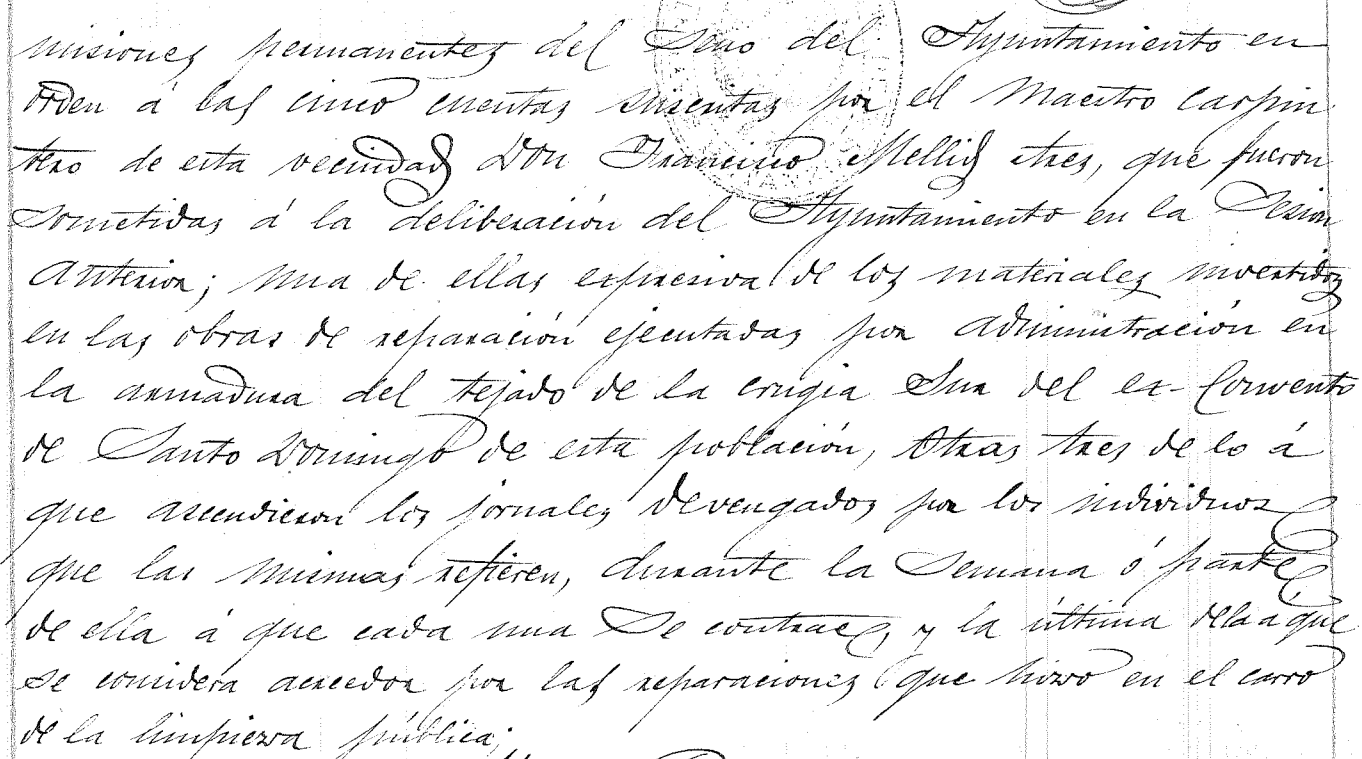 misiones permanentes del Seno del Ayuntamiento en
orden á las cinco cuentas suscritas por el Maestro carpin
tero de esta vecindad Don Francisco Mellid que fueron
sometidas á la deliberación del Ayuntamiento en la Sesion
Anterior; una de ellas expresiva de los materiales invertidos
en las obras de reparación ejecutadas por administración en
la armadura del tejado de la crugia Sur del ex-Convento
de Santo Domingo de esta población, Otras tres de lo á
que ascendieron los jornales devengados por los individuos
que las mismas refieren, durante la Semana ó parte
de ella á que cada una Se contrae, y la última de la a que
se considera acreedor por las reparaciones que hizo en el carro
de la limpieza pública;